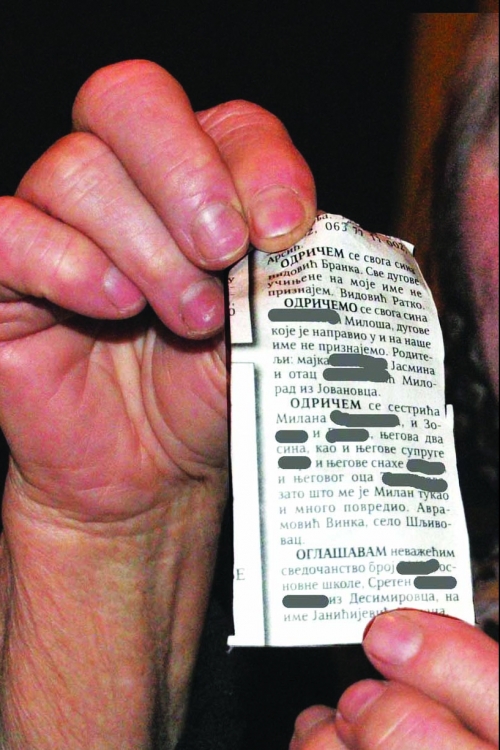 2, 063
Арсић.
ОДРИЧЕМ се свога сина
Видовић Бранка. Све дугове
учињене на моје име не
признајем. Видовић Ратко.
ОДРИЧЕМО се свога сина
Милоша, дугове
које је направио у и на наше
име не признајемо. Родите-
љи: мајка Јасмина
и отац ћ Мило-
рад из Јовановца.
ОДРИЧЕМ се сестрића
Милана , и Зо-
и , његова два
сина, као и његове супруге
и његове снахе
и његовог оца
зато што ме је Милан тукао
и много повредио. Авра-
мовић Винка, село Шљиво-
вац.
ОГЛАШАВАМ неважећим
сведочанство број ос-
новне школе. Сретен
из Десимировца, на
име Јанићијевић
Е